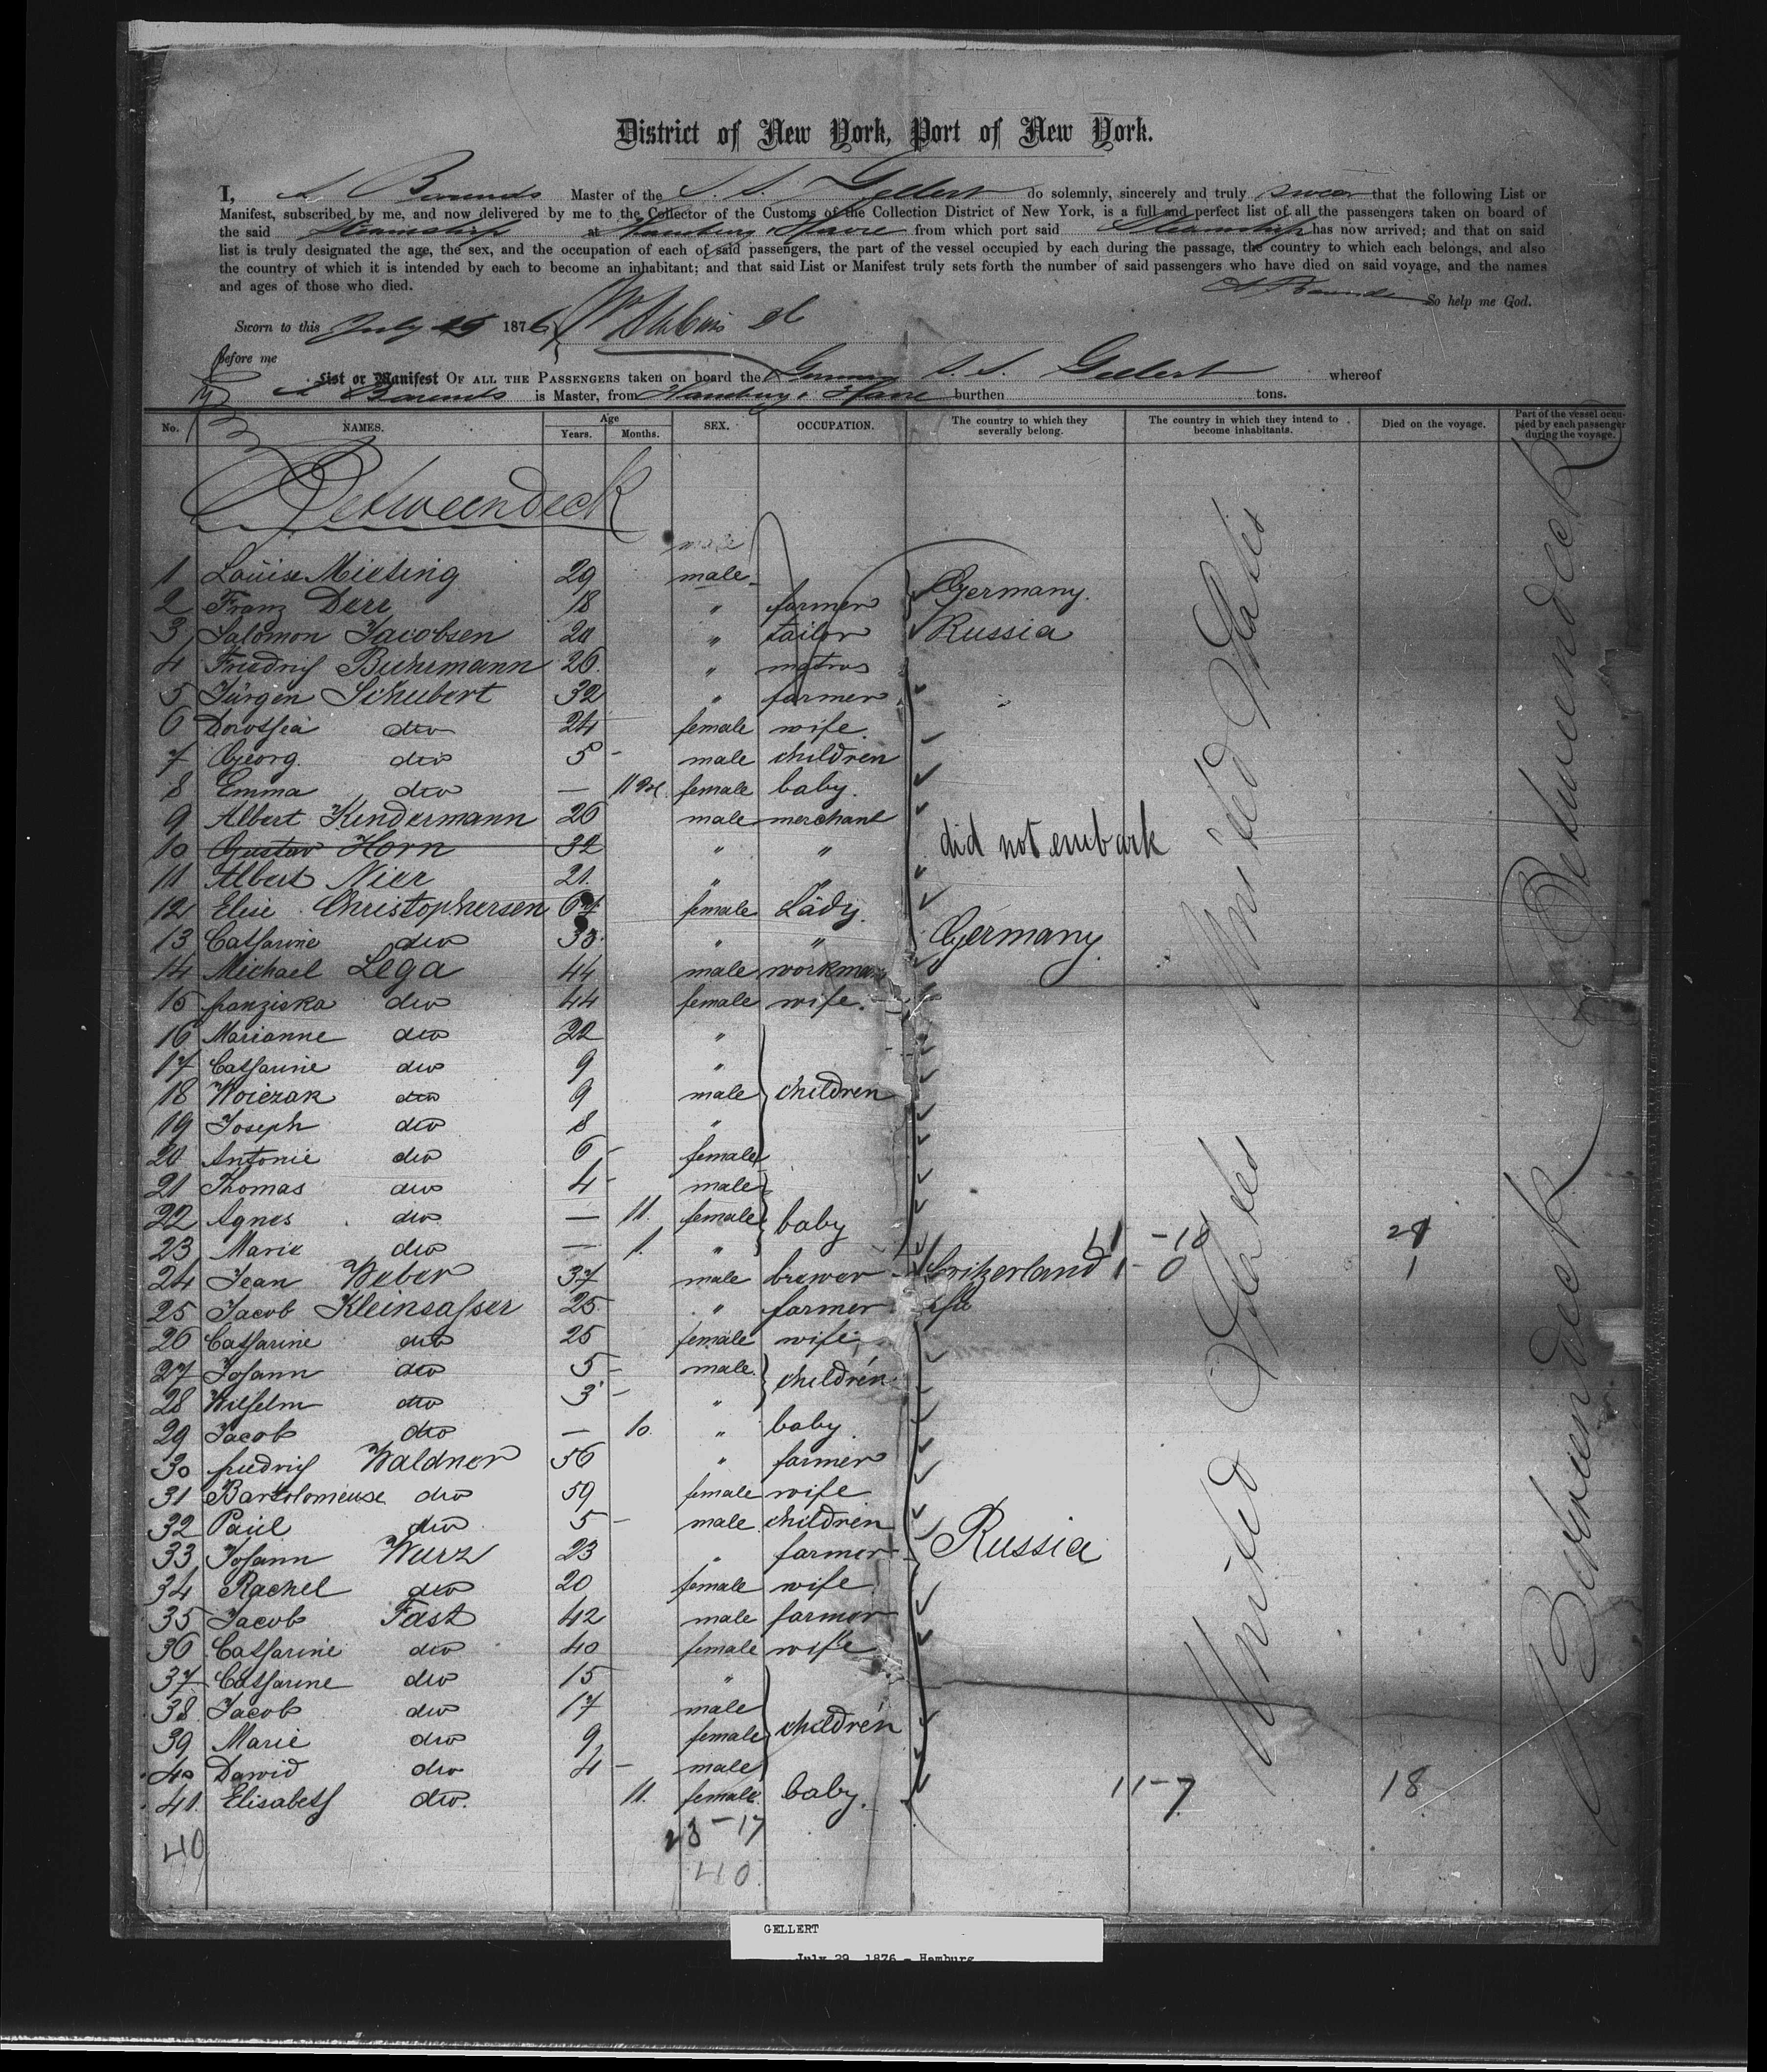 District of New York, Port of New York.
I, A Barends Master of the S. S. Gellert do solemnly, sincerely and truly swear that the following List or
Manifest, subscribed by me, and now delivered by me to the Collector of the Customs of the Collection District of New York, is a full and perfect list of all the passengers taken on board of
the said Steamship at Hamburg & Havre from which port said Steamship has now arrived; and that on said
list is truly designated the age, the sex, and the occupation of each of said passengers, the part of the vessel occupied by each during the passage, the country to which each belongs, and also
the country of which it is intended by each to become an inhabitant; and that said List or Manifest truly sets forth the number of said passengers who have died on said voyage, and the names
and ages of those who died.
A Barends So help me God.
Sworn to this July 1876
before me
List or Manifest OF ALL THE PASSENGERS taken on board the German S. S. Gellert whereof
A Barends is Master, from Hamburg & Havre burthen tons.
No. NAMES. Age Years. Months. SEX. OCCUPATION. The country to which they severally belong. The country in which they intend to become inhabitants. Died on the voyage. Part of the vessel occupied by each passenger during the voyage.
Betweendeck
male
1 Louise Mieting 29 male
2 Franz Derr 18 " farmer Germany.
3 Salomon Jacobsen 20 " tailor Russia
4 Friedrich Buhrmann 26. " matros
5 Jürgen Schubert 32 " farmer
6 Dorothea dto 24 female wife.
7 Georg. dto 5 - male children
8 Emma dto — 11 M. female baby.
9 Albert Kindermann 26 male merchant
10 Gustav Horn 32 " " did not embark
11 Albert Nier 21. " "
12 Elise Christophersen 67 female Lady.
13 Catharine dto 33. " " Germany.
14 Michael Lega 44 male workman
15 franziska dto 44 female wife.
16 Marianne dto 22 "
17 Catharine dto 9 "
18 Woiczak dto 9 male children
19 Joseph dto 8 "
20 Antonie dto 6 - female
21 Thomas dto 4 - male
22 Agnes dto — 11. female baby
23 Marie dto — 1. " 11 - 18 29
24 Jean Weber 37 male brewer Switzerland 1 - 0 1
25 Jacob Kleinsasser 25 " farmer
26 Catharine dto 25 female wife
27 Johann dto 5 - male children
28 Wilhelm dto 3 - "
29 Jacob dto — 10 " baby
30 friedrich Waldner 56 " farmer
31 Bartolomeuse dto 59 female wife
32 Paul dto 5 - male children
33 Johann Wurz 23 " farmer Russia
34 Rachel dto 20 female wife
35 Jacob Fast 42 male farmer
36 Catharine dto 40 female wife
37 Catharine dto 15 "
38 Jacob dto 17 male
39 Marie dto 9 female children
40 Dawid dto 4 - male
41. Elisabeth dto. 11. female. baby. 11 - 7 18
United States
United States
Betweendeck
Betweendeck
40 23 - 17
40
GELLERT
July 29, 1876 - Hamburg